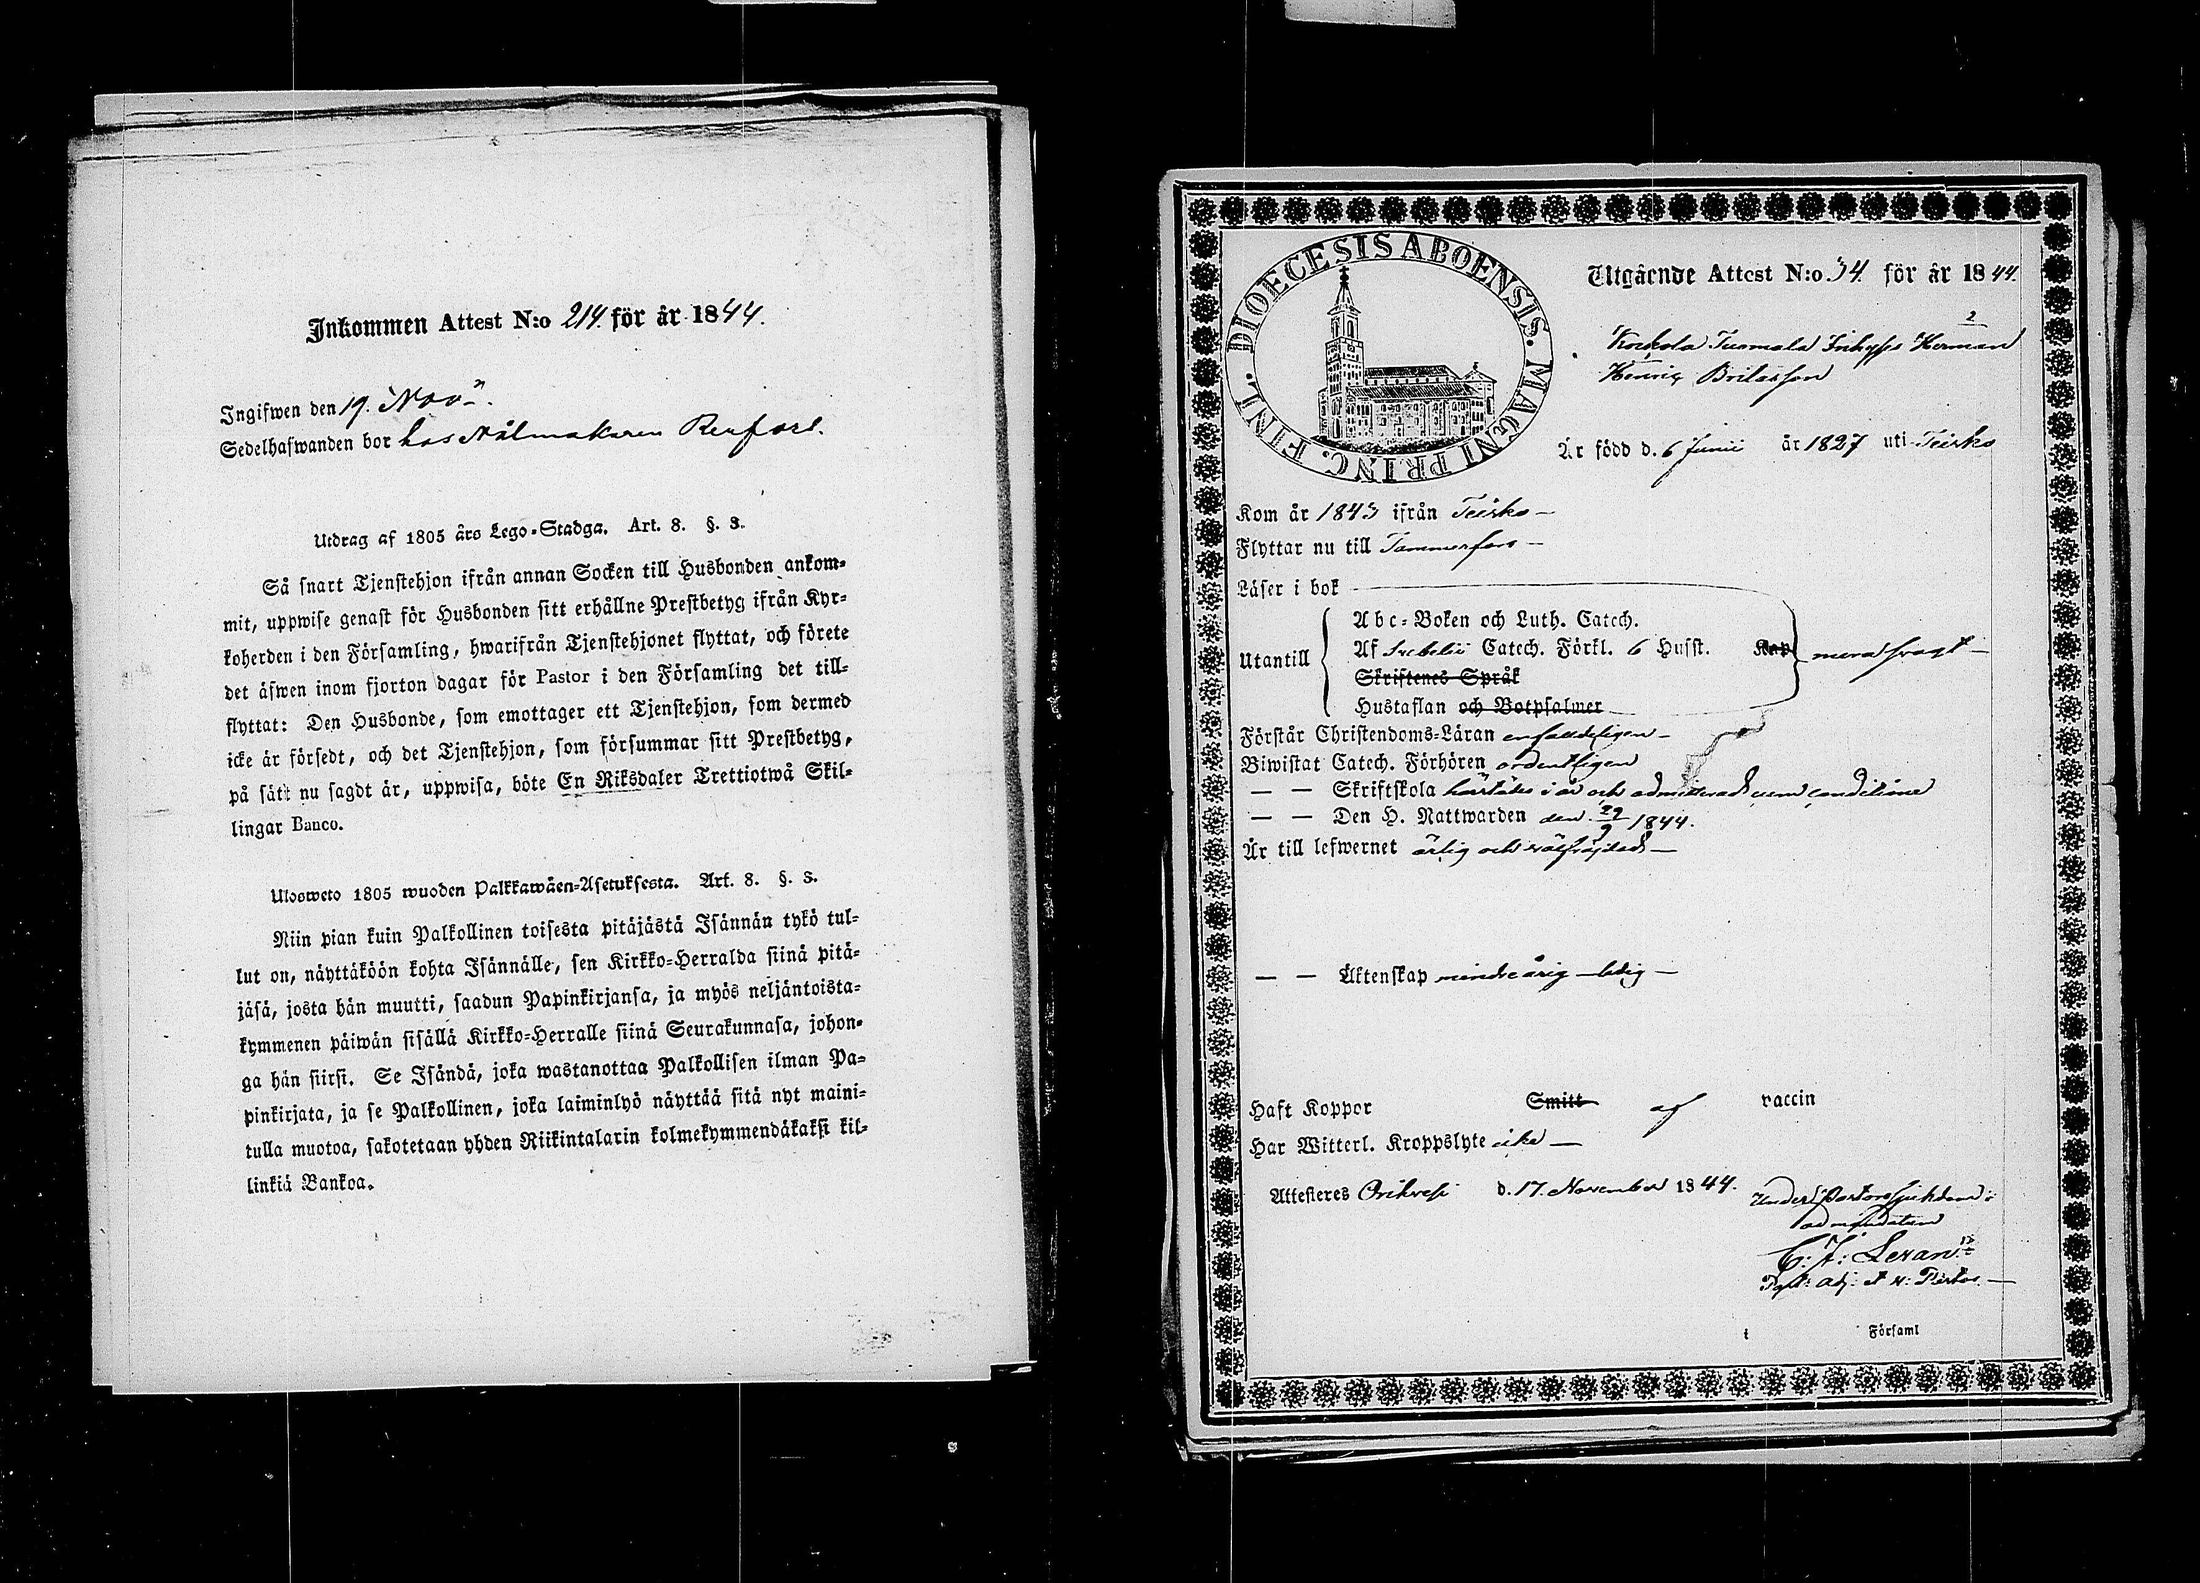 Inkommen Attest N:o 214. för år 1844.
Ingifwen den 19. Nov:r.
Sedelhafwanden bor hos Nålmakaren Renfors.
Utdrag af 1805 års Lego-Stadga. Art. 8. §. 3.
Så snart Tjenstehjon ifrån annan Socken till Husbonden ankom-
mit, uppwise genast för Husbonden sitt erhållne Prestbetyg ifrån Kyr-
koherden i den Församling, hwarifrån Tjenstehjonet flyttat, och förete
det äfwen inom fjorton dagar för Pastor i den Församling det till-
flyttat: Den Husbonde, som emottager ett Tjenstehjon, som dermed
icke är försedt, och det Tjenstehjon, som försummar sitt Prestbetyg,
på sätt nu sagdt är, uppwisa, böte En Riksdaler Trettiotwå Skil-
lingar Banco.
Ulosweto 1805 wuoden Palkkawäen-Asetuksesta. Art. 8. §. 3.
Niin pian kuin Palkollinen toisesta pitäjästä Isännän tykö tul-
lut on, näyttäköön kohta Isännälle, sen Kirkko-Herralda siinä pitä-
jäsä, josta hän muutti, saadun Papinkirjansa, ja myös neljäntoista-
kymmenen päiwän sisällä Kirkko-Herralle siinä Seurakunnasa, johon-
ga hän siirsi. Se Isändä, joka wastanottaa Palkollisen ilman Pa-
pinkirjata, ja se Palkollinen, joka laiminlyö näyttää sitä nyt maini-
tulla muotoa, sakotetaan yhden Riikintalarin kolmekymmendäkaksi kil-
linkiä Bankoa.
DIOECESIS ABOENSIS. MAGNI PRINC. FINL.
Utgående Attest N:o 34. för år 1844.
2
Tuomala Inhyses Herman
Henric
Är född d. 6 Junii år 1827 uti Teisko
Kom år 1843 ifrån Teisko —
Flyttar nu till Tammerfors —
Läser i bok
Abc-Boken och Luth. Catech.
Utantill Af Svebelii Catech. Förkl. 6 Husst. Kap
Skriftenes Språk
Hustaflan och Botpsalmer
Förstår Christendoms-Läran enfaldeligen —
Biwistat Catech. Förhören ordentligen
— — Skriftskola i år och admitterad cum conditione
— — Den H. Nattwarden den 29/9 1844.
Är till lefwernet ärlig och —
— — Äktenskap minderårig — ledig —
Haft Koppor Smitt af vaccin
Har Witterl. Kroppslyte icke —
Attesteres Orihvesi d. 17. November 1844.
Under Pastors sjukdom
C. J. Leran
i Församl